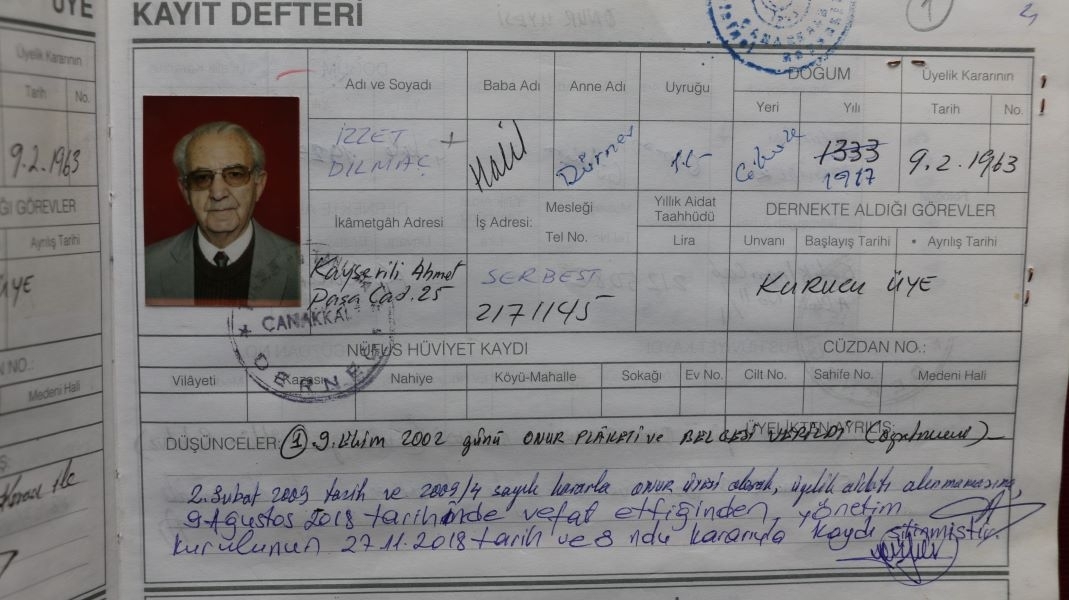 ÜYE
KAYIT DEFTERİ
1
Üyelik Kararının
Tarih No.
9.2.1963
Ğİ GÖREVLER
Ayrılış Tarihi
ÜYE
NO.:
Medeni Hali
Adı ve Soyadı Baba Adı Anne Adı Uyruğu DOĞUM Üyelik Kararının
Yeri Yılı Tarih No.
İZZET DİLMAÇ Halil T.C. 1333 1917 9.2.1963
İkâmetgâh Adresi İş Adresi: Mesleği Tel No. Yıllık Aidat Taahhüdü Lira DERNEKTE ALDIĞI GÖREVLER
Unvanı Başlayış Tarihi Ayrılış Tarihi
Kayserili Ahmet
Paşa Cad. 25
SERBEST
2171145
KURUCU ÜYE
ÇANAKKAL
DERNE
NÜFUS HÜVİYET KAYDI CÜZDAN NO.:
Vilâyeti Kazası Nahiye Köyü-Mahalle Sokağı Ev No. Cilt No. Sahife No. Medeni Hali
ÜYELİKTEN AYRILIŞ:
DÜŞÜNCELER: 1 9. Ekim 2002 günü ONUR PLÂKETİ ve BELGESİ VERİLDİ
2. Şubat 2009 tarih ve 2009/4 sayılı kararla ONUR ÜYESİ olarak, üyelik aidatı alınmamasına,
9 Ağustos 2018 tarihinde vefat ettiğinden, yönetim
kurulunun 27.11.2018 tarih ve 8 ndu kararıyla kaydı silinmiştir.